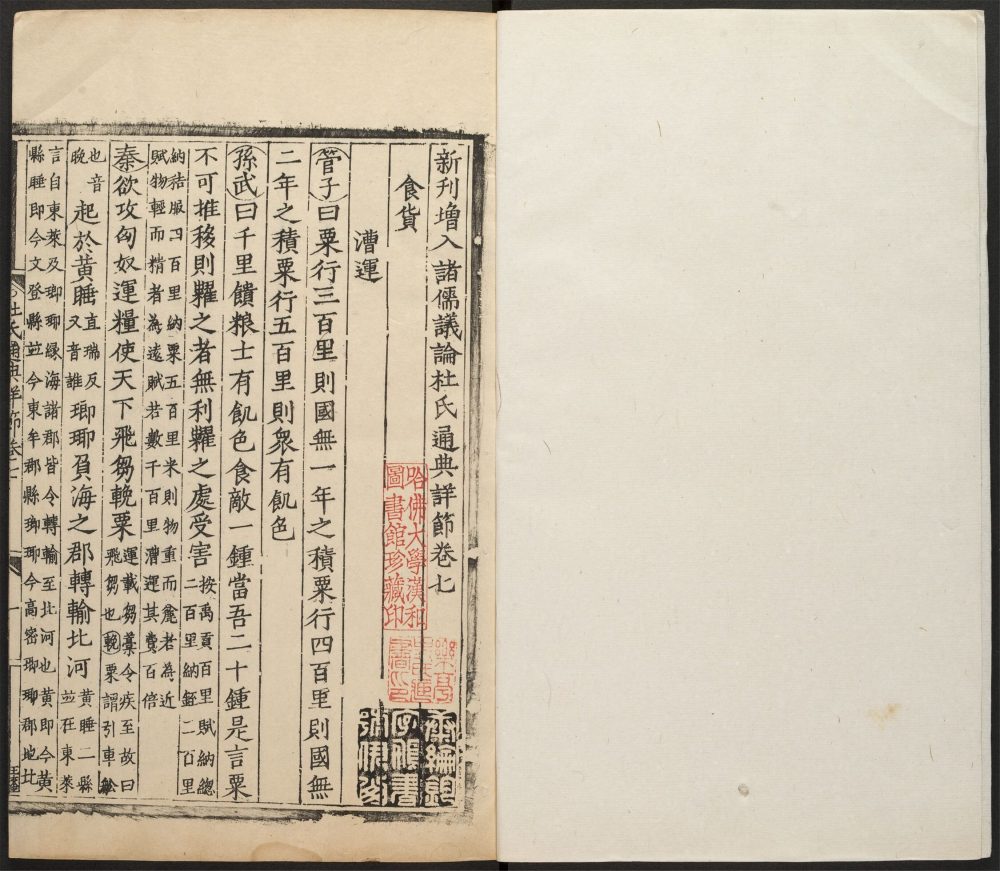 新刊增入諸儒議論杜氏通典詳節卷七
哈佛大學漢和
圖書館珍藏印
食貨
漕運
管子曰粟行三百里則國無一年之積粟行四百里則國無
二年之積粟行五百里則衆有飢色
孫武曰千里饋粮士有飢色食敵一鍾當吾二十鍾是言粟
不可推移則糶之者無利糴之處受害按禹貢百里賦納總二百里納銍三百里
納秸服四百里納粟五百里米則物重而麄者為近
賦物輕而精者為遠賦若數千百里漕運其費百倍
秦欲攻匈奴運糧使天下飛芻輓粟運載芻藁令疾至故曰飛芻也輓粟謂引車船
也音晚起於黃腄直瑞反又音誰瑯琊負海之郡轉輸北河黃腄二縣並在東萊
言自東萊及瑯琊緣海諸郡皆令轉輸至北河也黃即今黃
縣腄即今文登縣並今東牟郡縣瑯琊今高密瑯琊郡地北
杜氏通典詳節卷
一